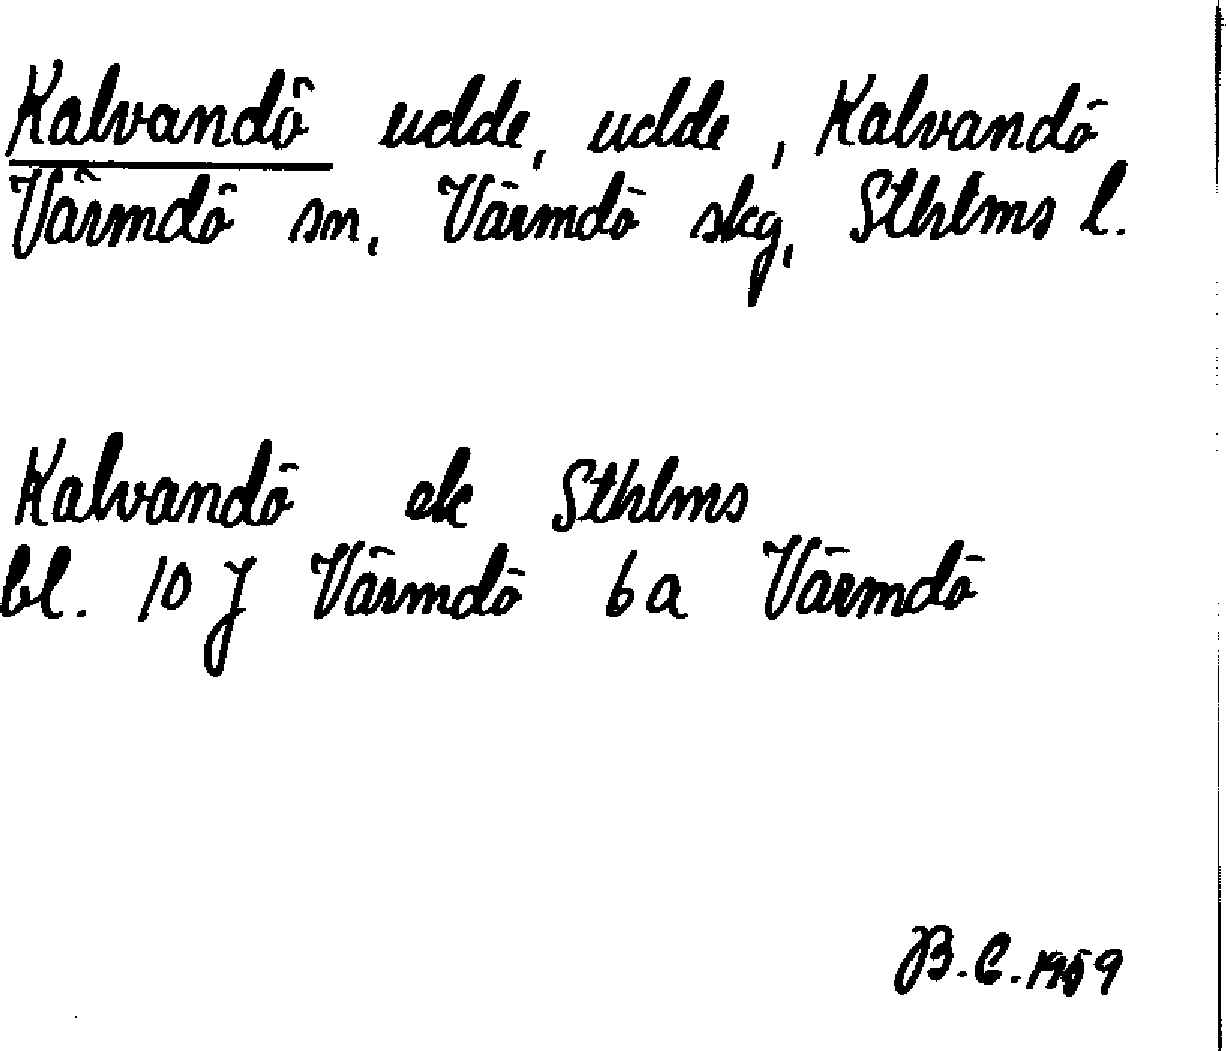 Kalvandö udde, udde, Kalvandö
Värmdö sn, Värmdö skg, Sthlms l.
Kalvandö ek Sthlms
bl. 10 J Värmdö 6 a Värmdö
B.C. 1959